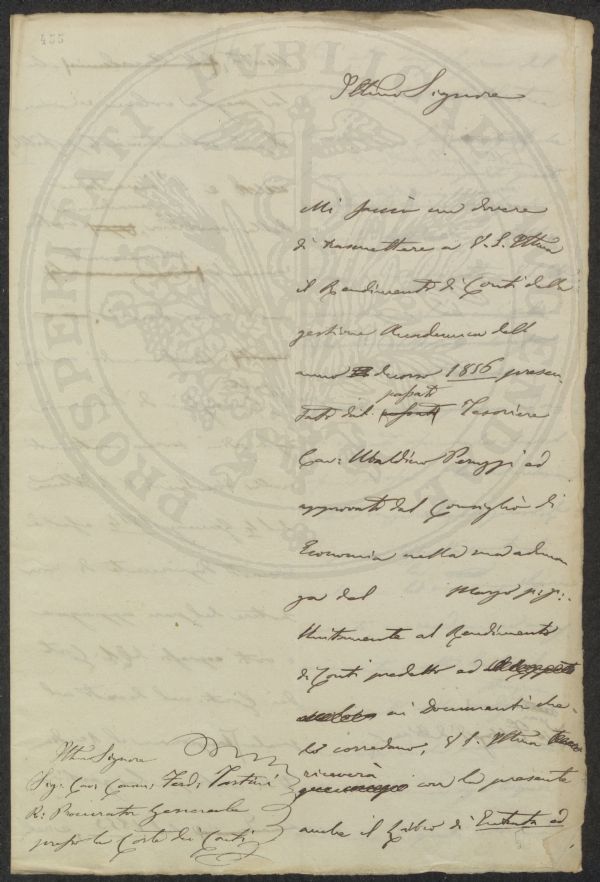 455
Illmo Signore
Mi faccio un dovere
di trasmettere a V. S. Illma
il Rendimento di Conti della
gestione Accademica dell
anno decorso 1856 presen
tato dal passato Tesoriere
Cav: Ubaldino Peruzzi ed
approvato dal Consiglio di
Economia nella sua adunan
za del Marzo p:p:
Unitamente al Rendimento
di Conti predetto ed
ai Documenti che
lo corredano, V. S. Illma
riceverà con la presente
anche il Libro di Entrata ed
Illmo Signore
Sig: Cav: Comm: Ferd: Tartini
R: Procurator Generale
presso la Corte dei Conti
PROSPERITATI PUBLICAE AUGENDAE